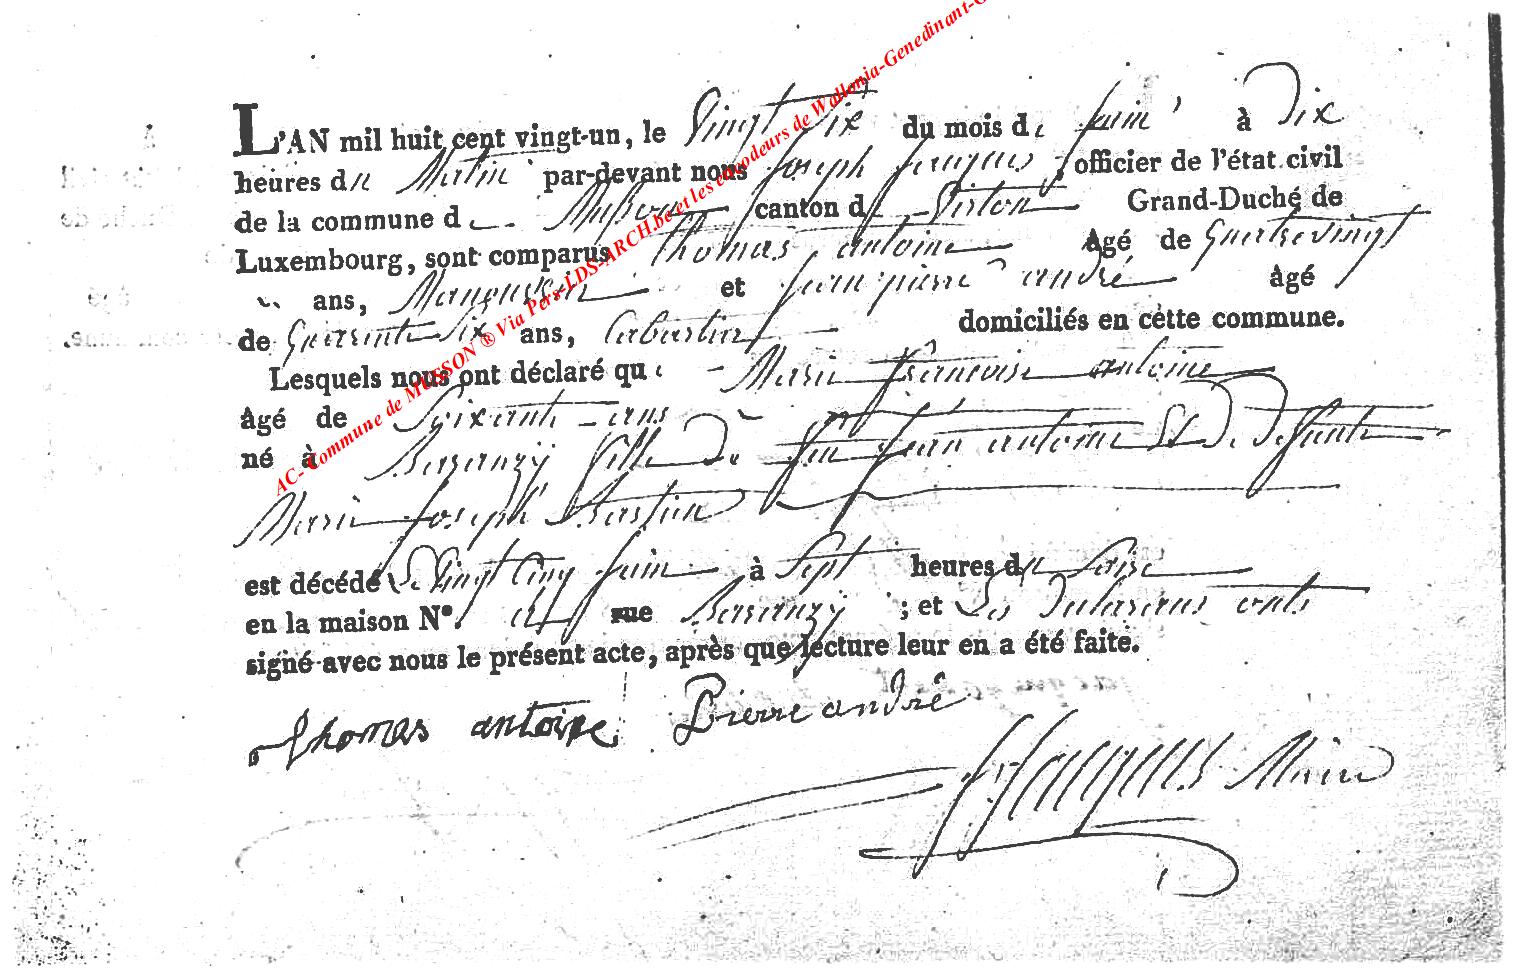 L'AN mil huit cent vingt-un, le Vingt Six du mois de Juin à Dix
heures du Matin par-devant nous Joseph Jacques, officier de l'état civil
de la commune de Musson canton de Virton Grand-Duché de
Luxembourg, sont comparus Thomas antoine âgé de Quatrevingt
ans, Manouvrier et Jean pierre andré âgé
de Quarente Six ans, Cabartier domiciliés en cette commune.
Lesquels nous ont déclaré que Marie françoise antoine
âgé de Soixante ans
né à Baranzy fille De feu Jean antoine Et De Defunte
Marie Joseph Bastin
est décédé Le Vingt Cinq Juin à Sept heures du Soire
en la maison N°. rue Baranzy ; et Les Delarans onts
signé avec nous le présent acte, après que lecture leur en a été faite.
thomas antoine Pierre andré
J Jacques Maire
AC- Commune de MUSSON ® Via Pers-LDS-ARCH.be et les encodeurs de Wallonia-Genedinant-